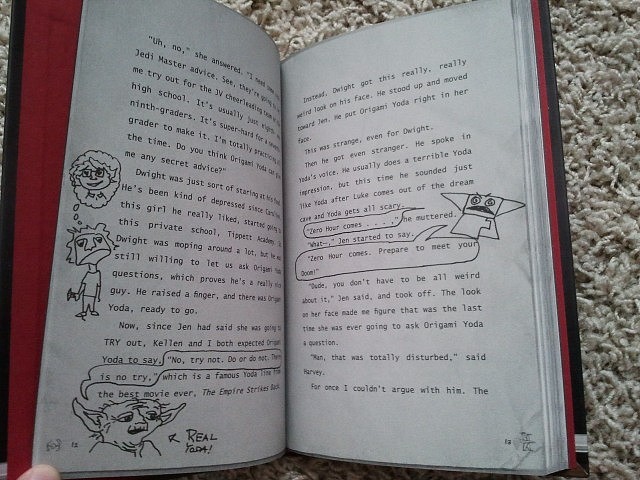 "Uh, no," she answered. "I need some
Jedi Master advice. See, they're going to
me try out for the JV cheerleading team
high school. It's usually just eighth
ninth-graders. It's super-hard for a
grader to make it. I'm totally practicing
the time. Do you think Origami Yoda
me any secret advice?"
Dwight was just sort of staring at his
He's been kind of depressed since
this girl he really liked, started going
this private school, Tippett Academy.
Dwight was moping around a lot, but he
still willing to let us ask Origami
questions, which proves he's a really
guy. He raised a finger, and there was Origami
Yoda, ready to go.
Now, since Jen had said she was going
TRY out, Kellen and I both expected Origami
Yoda to say, "No, try not. Do or do not. There
is no try," which is a famous Yoda line from
the best movie ever, The Empire Strikes Back.
REAL
YODA!
12
Instead, Dwight got this really, really
weird look on his face. He stood up and moved
toward Jen. He put Origami Yoda right in her
face.
This was strange, even for Dwight.
Then he got even stranger. He spoke in
Yoda's voice. He usually does a terrible Yoda
impression, but this time he sounded just
like Yoda after Luke comes out of the dream
cave and Yoda gets all scary.
"Zero Hour comes . . . ," he muttered.
"What—," Jen started to say.
"Zero Hour comes. Prepare to meet your
Doom!"
"Dude, you don't have to be all weird
about it," Jen said, and took off. The look
on her face made me figure that was the last
time she was ever going to ask Origami Yoda
a question.
"Man, that was totally disturbed," said
Harvey.
For once I couldn't argue with him. The
13